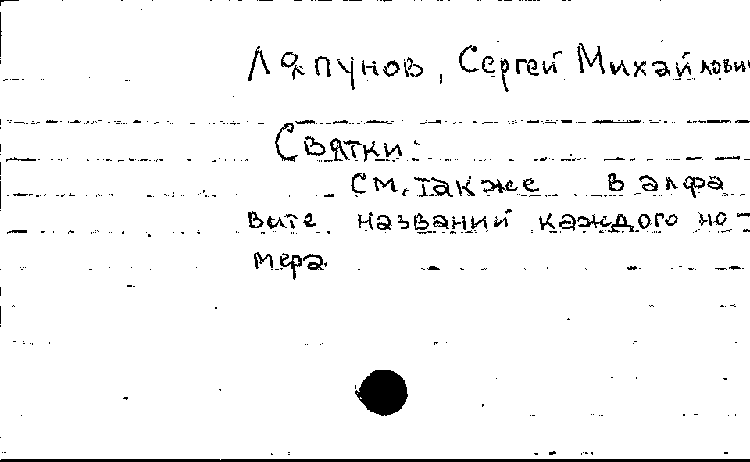 Ляпунов, Сергей Михайлович
Святки.
См. также в алфа
вите названий каждого но-
мера.